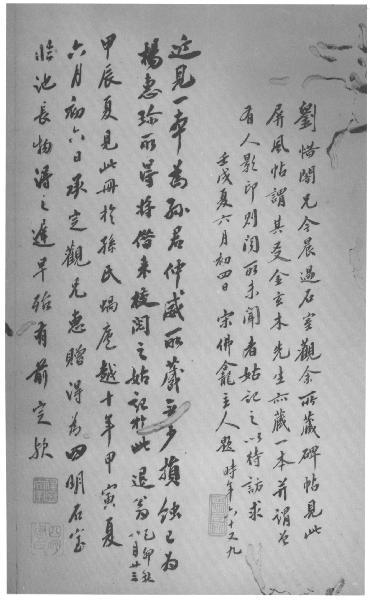 劉惜闇兄今晨過石室觀余所藏碑帖見此
屏風帖謂其友金玄木先生亦藏一本并謂曾
有人影印則聞所未聞者姑記之以待訪求
壬戌夏六月初四日 宋佛龕主人題 時年六十又九
近見一本為孫君仲威所藏無少損蝕已為
楊惠 所得将借来校閱之姑記於此 退翁 乙卯秋八月廿三
甲辰夏見此冊於孫氏蝸廬越十年甲寅夏
六月初六日承定觀兄惠贈得為四明石室
臨池長物得之遲早殆有前定歟